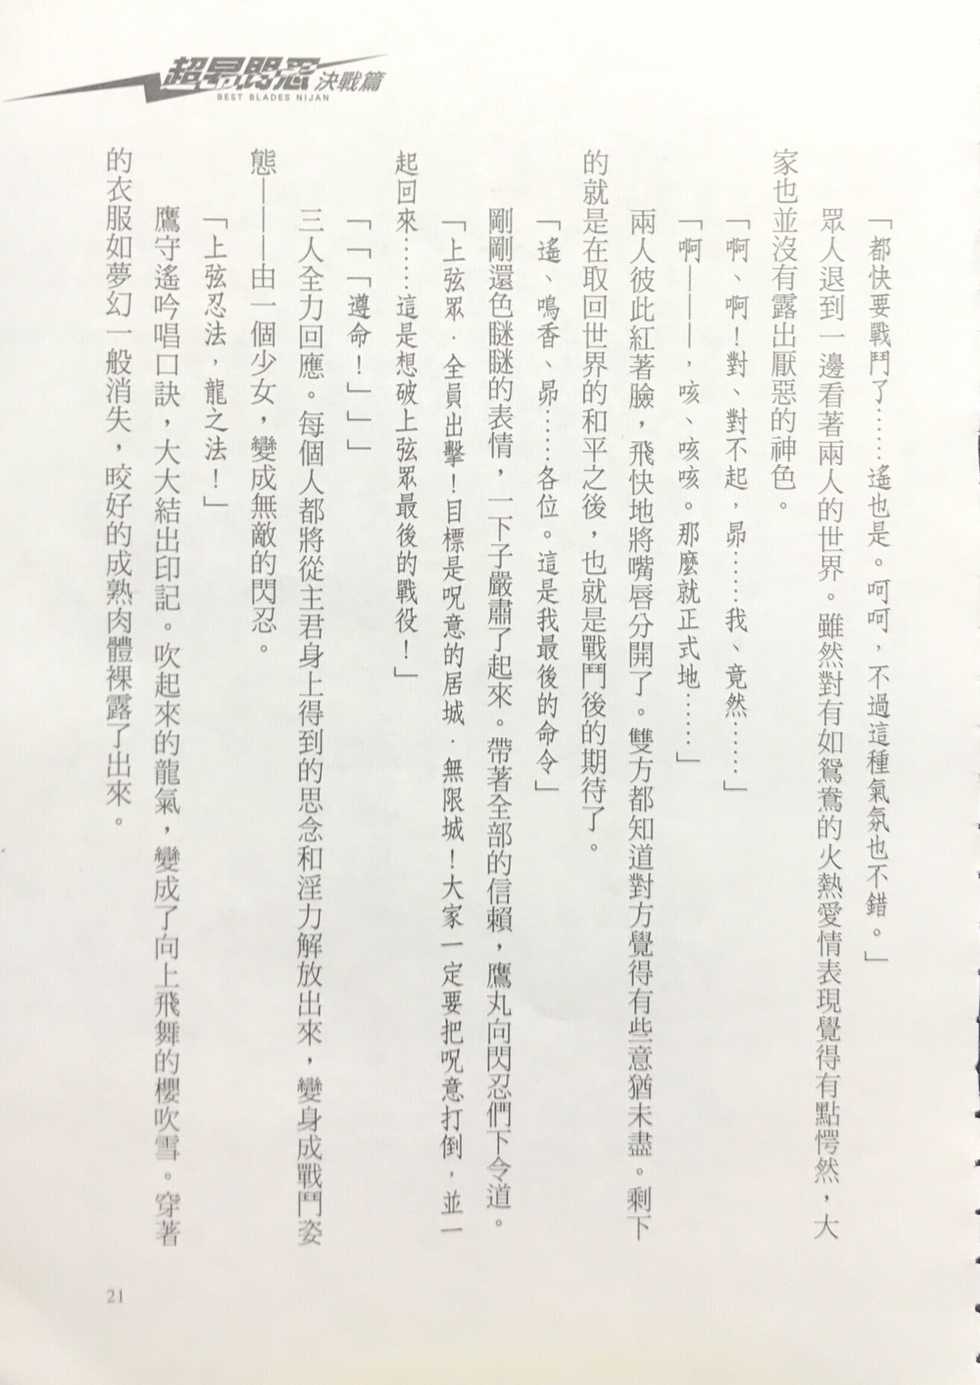 超昂閃忍 決戰篇
BEST BLADES NIJAN
「都快要戰鬥了……遙也是。呵呵，不過這種氣氛也不錯。」
眾人退到一邊看著兩人的世界。雖然對有如鴛鴦的火熱愛情表現覺得有點愕然，大
家也並沒有露出厭惡的神色。
「啊、啊！對、對不起，昴……我、竟然……」
「啊———，咳、咳咳。那麼就正式地……」
兩人彼此紅著臉，飛快地將嘴唇分開了。雙方都知道對方覺得有些意猶未盡。剩下
的就是在取回世界的和平之後，也就是戰鬥後的期待了。
「遙、鳴香、昴……各位。這是我最後的命令」
剛剛還色瞇瞇的表情，一下子嚴肅了起來。帶著全部的信賴，鷹丸向閃忍們下令道。
「上弦眾．全員出擊！目標是呪意的居城．無限城！大家一定要把呪意打倒，並一
起回來……這是想破上弦眾最後的戰役！」
「「「遵命！」」」
三人全力回應。每個人都將從主君身上得到的思念和淫力解放出來，變身成戰鬥姿
態———由一個少女，變成無敵的閃忍。
「上弦忍法，龍之法！」
鷹守遙吟唱口訣，大大結出印記。吹起來的龍氣，變成了向上飛舞的櫻吹雪。穿著
的衣服如夢幻一般消失，咬好的成熟肉體裸露了出來。
21